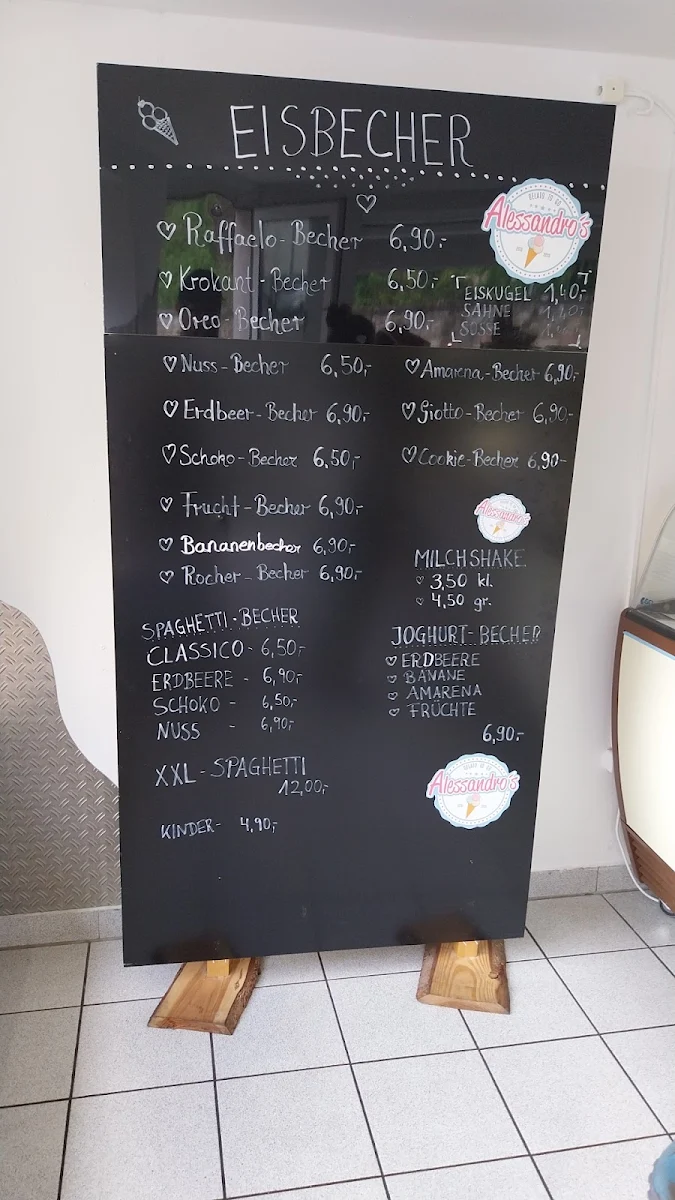 EISBECHER
Raffaelo-Becher 6,90,-
Krokant-Becher 6,50,-
Oreo-Becher 6,90,-
Alessandro's
EISKUGEL 1,40,-
SAHNE
SOSSE
Nuss-Becher 6,50,-
Erdbeer-Becher 6,90,-
Schoko-Becher 6,50,-
Frucht-Becher 6,90,-
Bananenbecher 6,90,-
Rocher-Becher 6,90,-
Amarena-Becher 6,90,-
Giotto-Becher 6,90,-
Cookie-Becher 6,90-
Alessandro's
MILCHSHAKE
3,50 kl.
4,50 gr.
SPAGHETTI-BECHER
CLASSICO - 6,50,-
ERDBEERE - 6,90,-
SCHOKO - 6,50,-
NUSS - 6,90,-
XXL-SPAGHETTI
12,00,-
KINDER- 4,90,-
JOGHURT-BECHER
ERDBEERE
BANANE
AMARENA
FRÜCHTE
6,90,-
Alessandro's